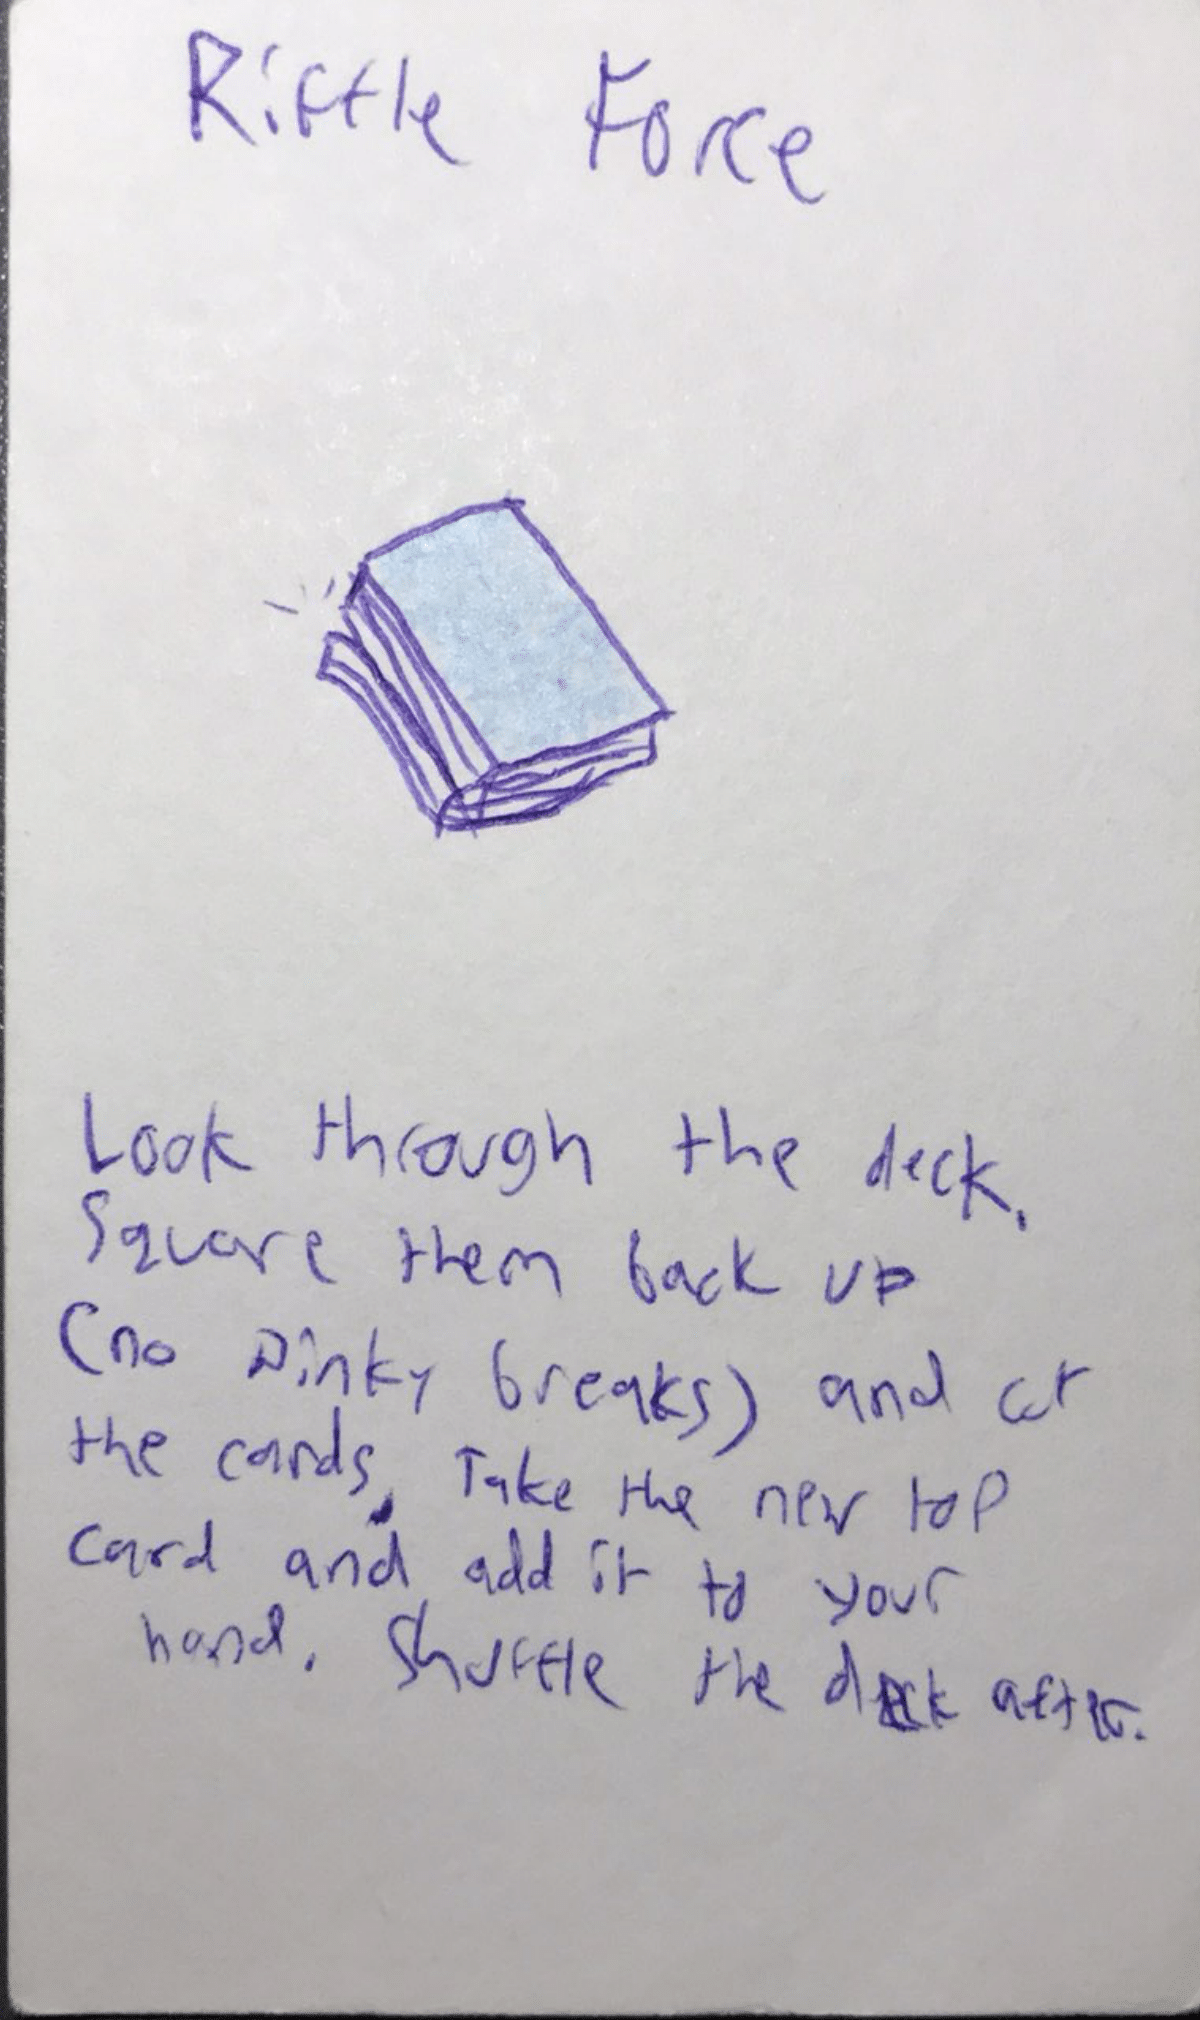 Riffle Force
Look through the deck.
Square them back up
(no pinky breaks) and cut
the cards. Take the new top
card and add it to your
hand. Shuffle the deck after.